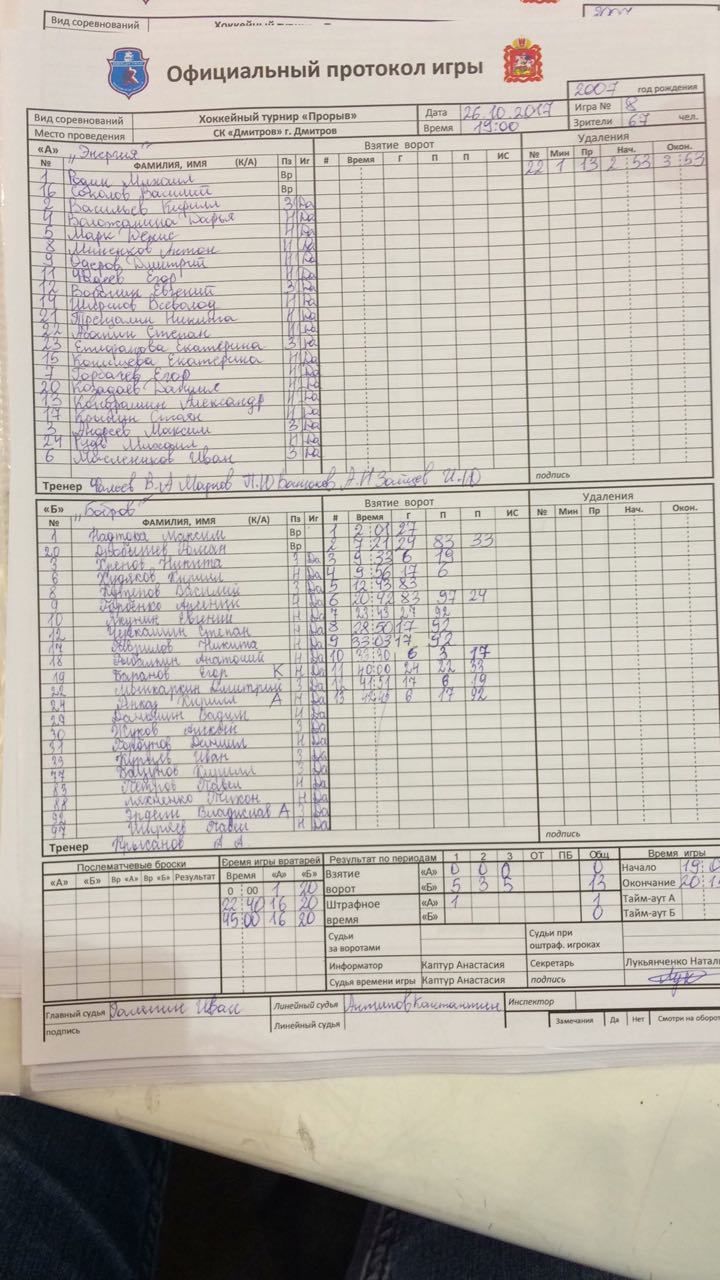 Вид соревнований
Официальный протокол игры
2007 год рождения
Вид соревнований Хоккейный турнир «Прорыв» Дата 26.10.2017 Игра № 8
Место проведения СК «Дмитров» г. Дмитров Время 19:00 Зрители 67 чел.
«А» „Энергия" Взятие ворот Удаления
№ ФАМИЛИЯ, ИМЯ (К/А) Пз Иг # Время Г П П ИС № Мин Пр Нач. Окон.
1 Родин Михаил Вр 22 1 13 2 53 3 53
16 Соколов Василий Вр
2 Васильев Кирилл З Да
4 Воложанина Дарья Н Да
5 Марк Денис Н Да
8 Миненков Антон Н Да
9 Дмитрий Н Да
11 Фадеев Егор Н Да
12 Воронин Евгений З Да
19 Ширшов Всеволод Н Да
21 Трещалин Никита Н Да
22 Степан Н Да
23 Епифанова Екатерина З Да
15 Екатерина Н Да
7 Горбачев Егор Н Да
20 Козадаев Даниил Н Да
13 Кондрашин Александр Н Да
17 Н Да
3 Андреев Максим З Да
24 Гудз Михаил Н Да
6 Маслеников Иван З Да
подпись
Тренер Фалеев В.А Марков П.Ю А.Н Зайцев И.Ю
«Б» „Бобров" Взятие ворот Удаления
№ ФАМИЛИЯ, ИМЯ (К/А) Пз Иг # Время Г П П ИС № Мин Пр Нач. Окон.
1 Надтока Максим Вр 1 2:01 27
20 Роман Вр 2 7 21 29 83 33
3 Хренов Никита З Да 3 9:33 6 19
6 Худяков Кирилл Н Да 4 9:56 17 6
8 Василий З Да 5 12:43 83
9 Арсений Н Да 6 20:42 83 97 24
10 Якунин Евгений Н Да 7 23:43 27 92
12 Степан Н Да 8 28:50 17 92
17 Гаврилов Никита Н Да 9 33:03 17 92
18 Анатолий Н Да 10 33:30 6 3 17
19 Баранов Егор К Н Да 11 40:00 24 22 33
22 Дмитрий З Да 12 41:31 17 6 19
24 Кирилл А Н Да 13 6 17 92
29 Вадим Н Да
30 Жуков З Да
31 Горбунов Даниил Н Да
33 Иван З Да
77 Кирилл З Да
83 Петров Павел Н Да
88 Ляхненко Тихон Н Да
92 Эрдели Владислав А Да
97 Ширяев Павел Н Да
подпись
Тренер Крысанов А А
Послематчевые броски Время игры вратарей Результат по периодам 1 2 3 ОТ ПБ Общ Время игры
«А» «Б» Вр «А» Вр «Б» Результат Время «А» «Б» Взятие ворот «А» 0 0 0 0 Начало
0 00 1 20 «Б» 5 3 5 13 Окончание
22 40 16 20 Штрафное время «А» 1 1 Тайм-аут А
45 00 16 20 «Б» 0 Тайм-аут Б
Судьи за воротами Судьи при оштраф. игроках
Информатор Каптур Анастасия Секретарь Лукьянченко Натал
Судья времени игры Каптур Анастасия подпись
Главный судья Галынин Иван Линейный судья Антипов Константин Инспектор
подпись Линейный судья Замечания Да Нет Смотри на оборот